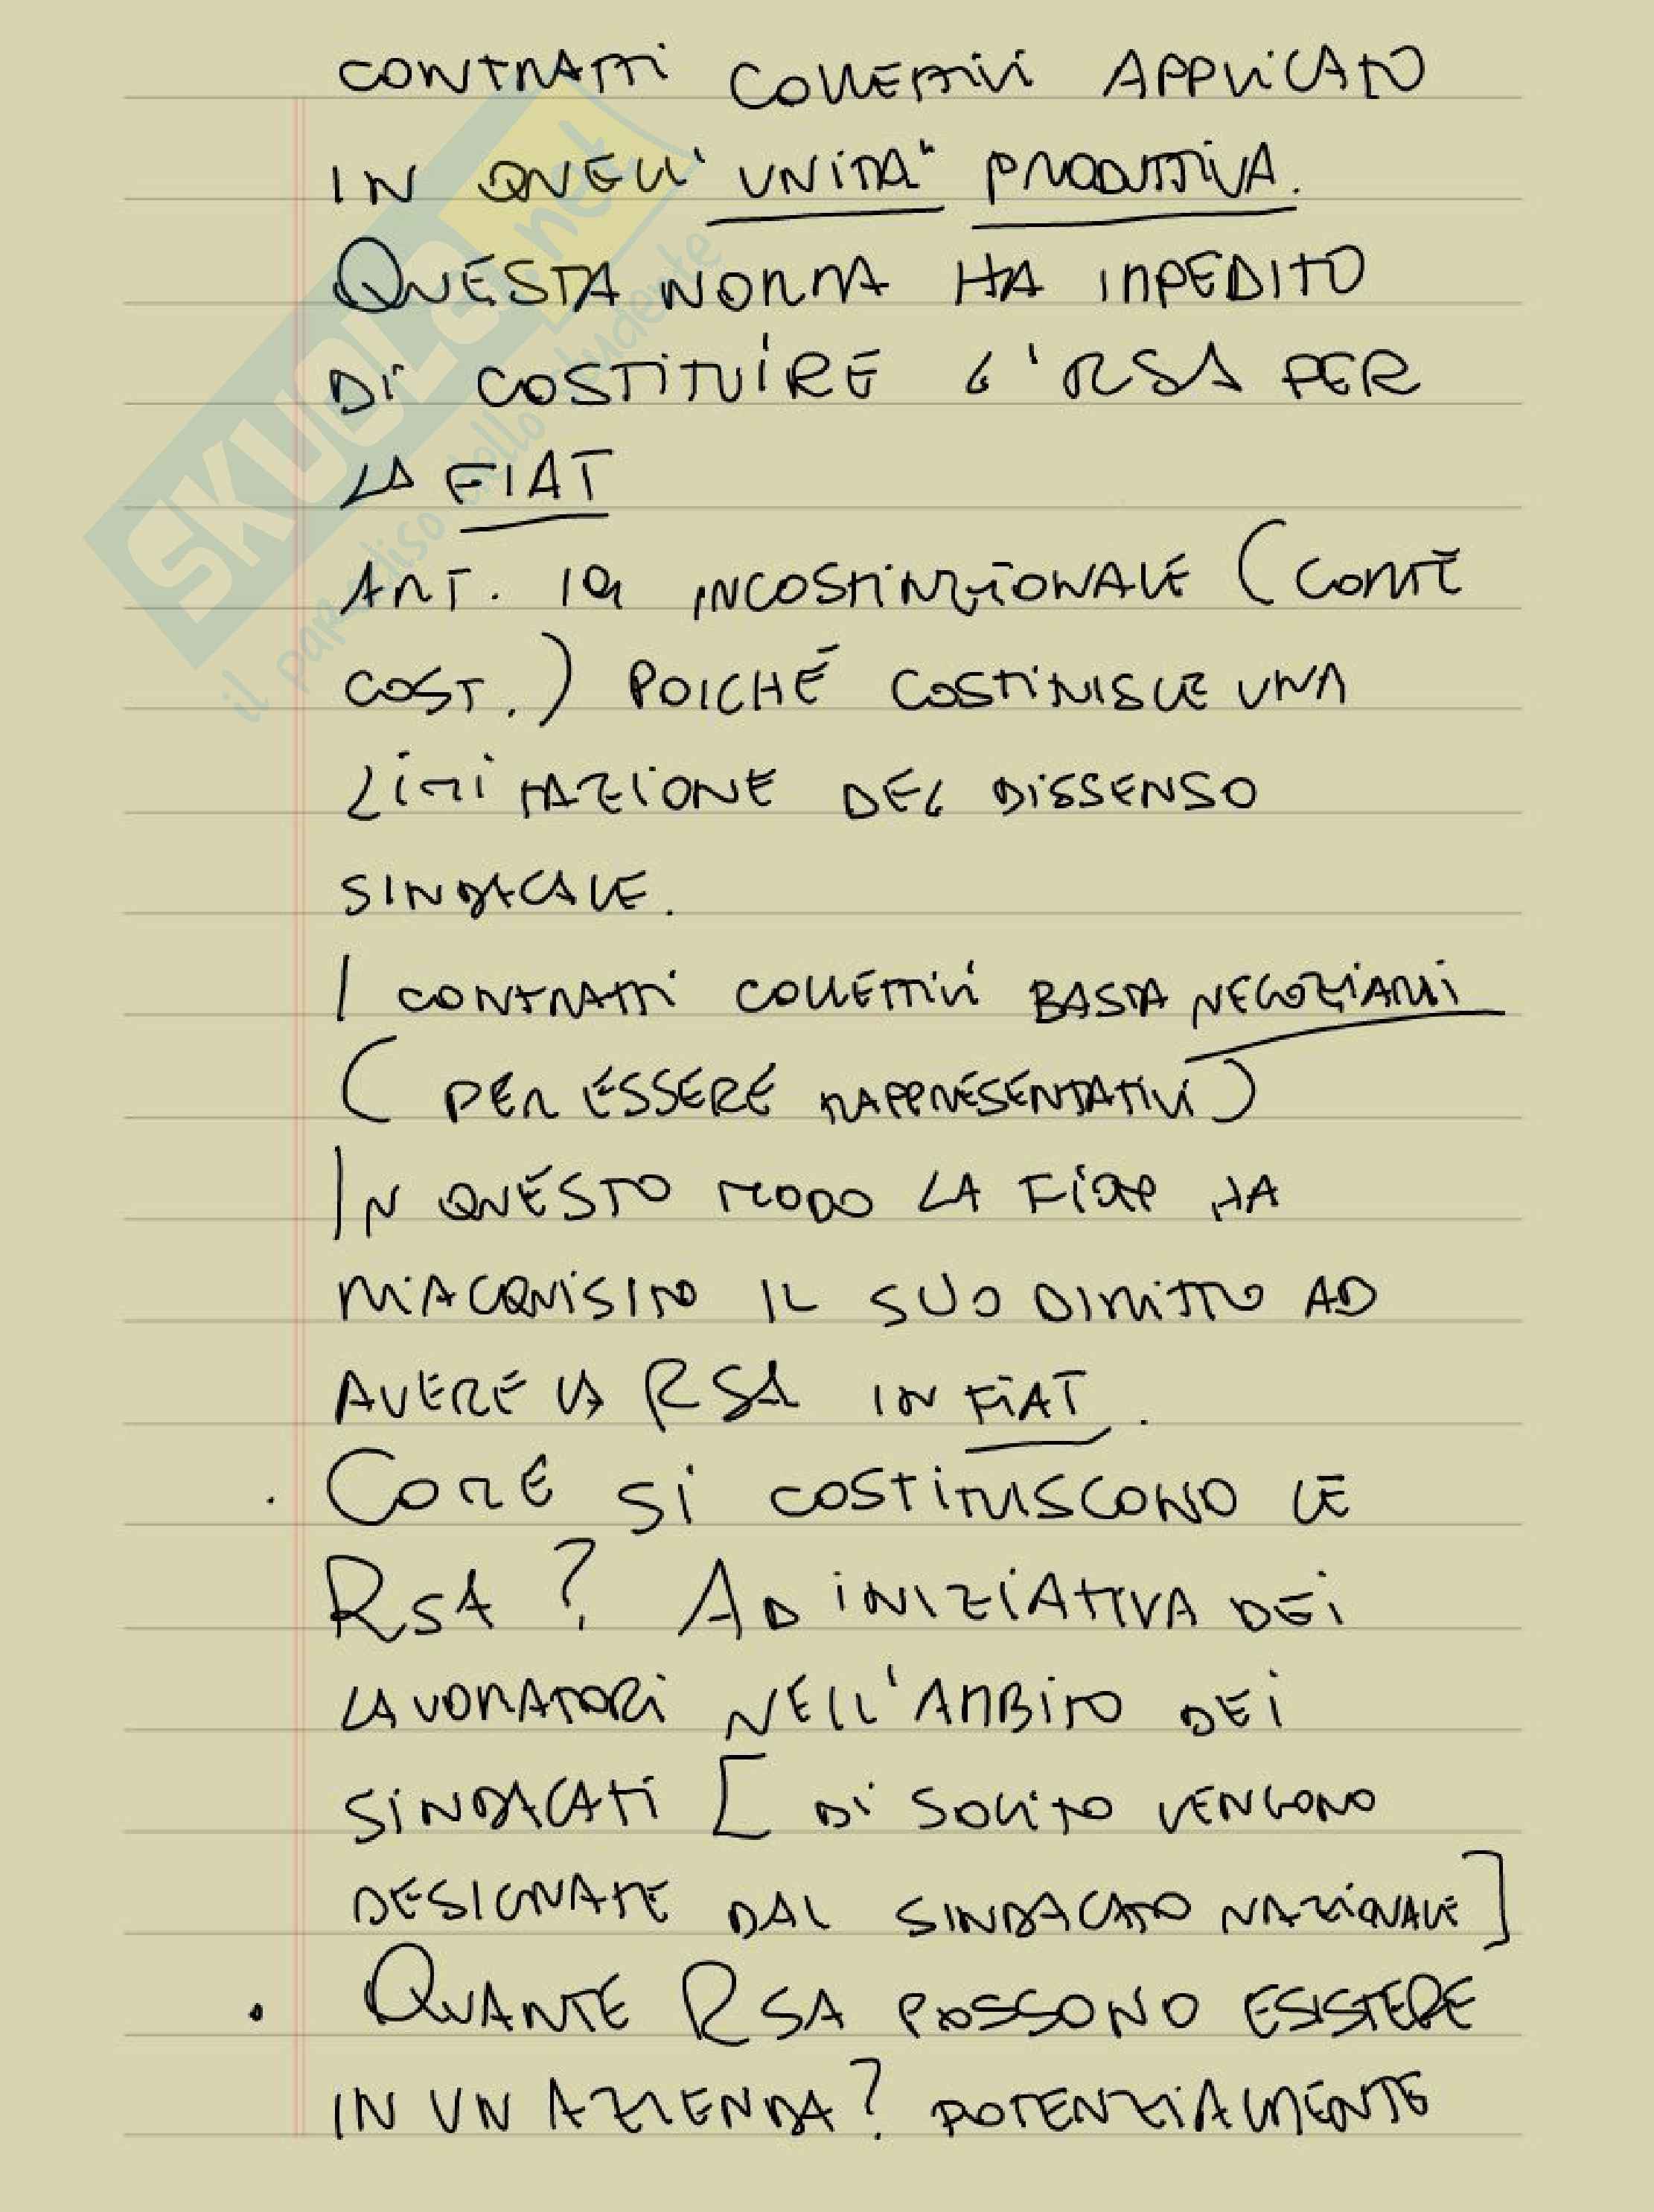 CONTRATTI COLLETTIVI APPLICATO
IN QUELL' UNITA' PRODUTTIVA.
QUESTA NORMA HA IMPEDITO
DI COSTITUIRE L'RSA PER
LA FIAT
ART. 19 INCOSTITUZIONALE (CORTE
COST.) POICHÉ COSTITUISCE UNA
LIMITAZIONE DEL DISSENSO
SINDACALE.
I CONTRATTI COLLETTIVI BASTA NEGOZIARLI
(PER ESSERE RAPPRESENTATIVI)
IN QUESTO MODO LA HA
RIACQUISITO IL SUO DIRITTO AD
AVERE LA RSA IN FIAT.
. COME SI COSTITUISCONO LE
RSA? AD INIZIATIVA DEI
LAVORATORI NELL'AMBITO DEI
SINDACATI [DI SOLITO VENGONO
DESIGNATE DAL SINDACATO NAZIONALE]
. QUANTE RSA POSSONO ESISTERE
IN UN AZIENDA? POTENZIALMENTE
SKUOLA.net
il paradiso dello studente